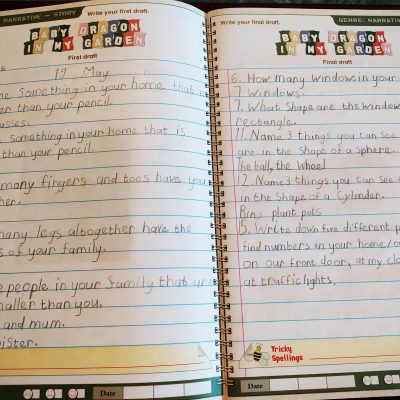 NARRATIVE – STORY
Write your first draft.
BABY DRAGON
IN MY GARDEN
First draft
19 May
Something in your home that
than your pencil.
Something in your home that is
than your pencil.
many fingers and toes have you
many legs altogether have the
of your family.
people in your family that are
smaller than you.
and mum.
Date
GENRE: NARRATIVE
Write your final draft.
BABY DRAGON
IN MY GARDEN
Final draft
6. How many windows in your
7 Windows.
7. What Shape are the window
rectangle.
11. Name 3 things you can see
are in the shape of a sphere.
The ball, the Wheel
12. Name 3 things you can see
in the shape of a Cylinder.
Bin, plant pots
15. Write down five different p
find numbers in your home/
on our front door, at my
at traffic lights,
Tricky
Spellings
Date